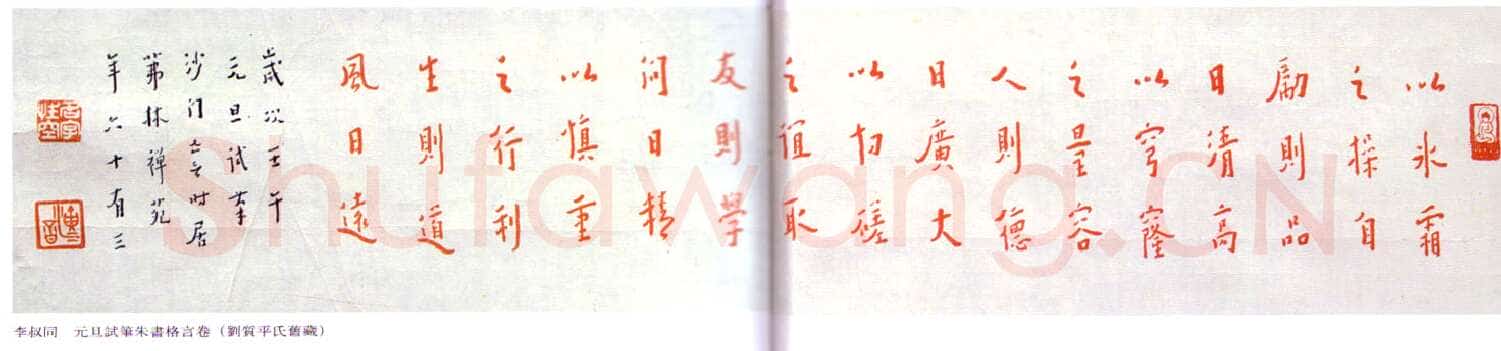 以冰霜
之操自
勵則品
日清高
以穹窿
之量容
人則德
日廣大
以切磋
之誼取
友則學
問日精
以慎重
之行利
生則道
風日遠
歲次壬午
元旦試筆
沙门亡言时居
茀林禪苑
年六十有三
名字性空
Shufawang.CN
李叔同　元旦試筆朱書格言卷（劉質平氏舊藏）